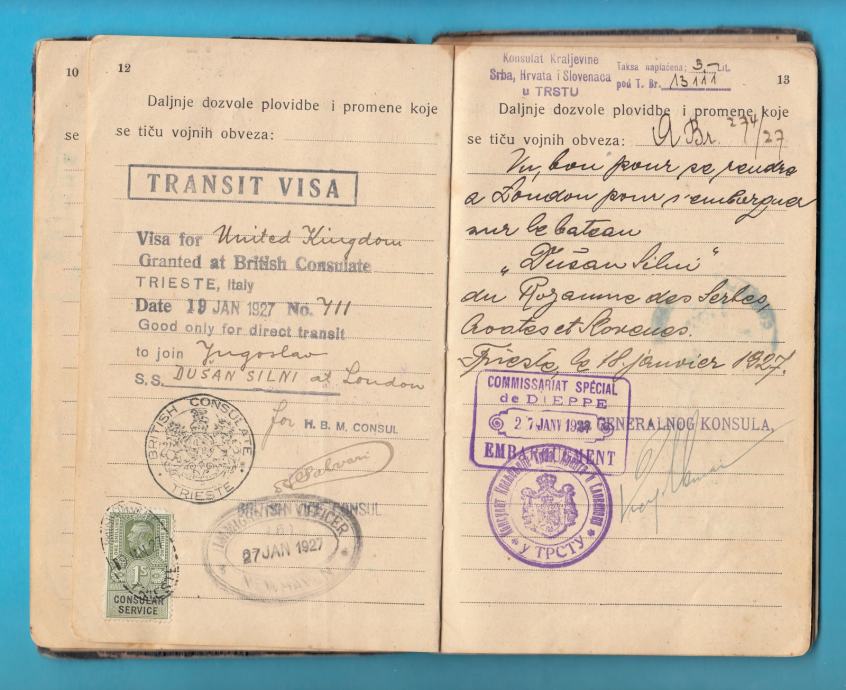 10
se
12
Daljnje dozvole plovidbe i promene koje
se tiču vojnih obveza:
TRANSIT VISA
Visa for United Kingdom
Granted at British Consulate
TRIESTE, Italy
Date 19 JAN 1927 No. 711
Good only for direct transit
to join Jugoslav
S.S. DUŠAN SILNI at London
for H. B. M. CONSUL
BRITISH CONSULATE
TRIESTE
BRITISH VICE CONSUL
IMMIGRATION OFFICER
(6)
27 JAN 1927
NEWHAVEN
1S
CONSULAR
SERVICE
Konsulat Kraljevine
Srba, Hrvata i Slovenaca
u TRSTU
Taksa naplaćena: 3.- Lit.
pod T. Br. 13111
13
Daljnje dozvole plovidbe i promene koje
se tiču vojnih obveza: A Br. 274/27
Vu, bon pour se rendre
a London pour s'embarquer
sur le bateau
„Dušan Silni"
du Royaume des Serbes,
Croates et Slovenes.
Trieste, le 18 janvier 1927.
COMMISSARIAT SPÉCIAL
de DIEPPE
27 JANV 1927
EMBARQUEMENT
GENERALNOG KONSULA,
У ТРСТУ